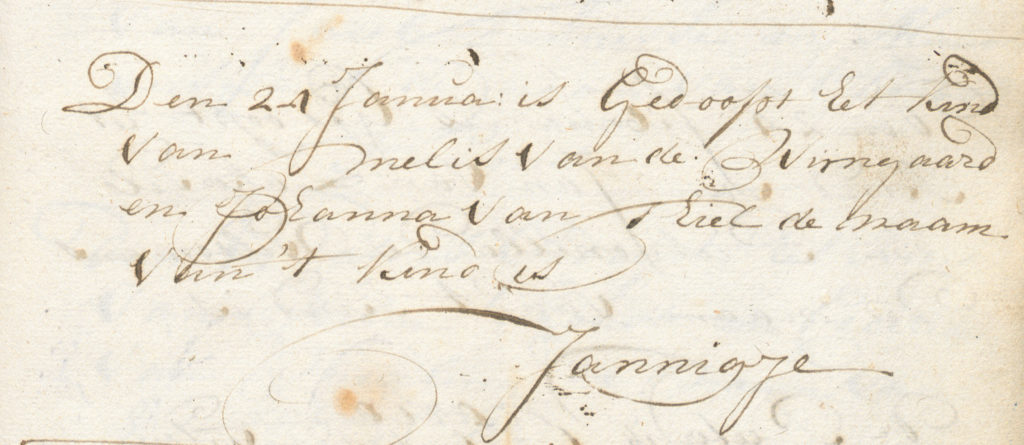 Den 21 Janua: is Gedoopt het kind
van melis van de Wijngaard
en Johanna van Thiel de naam
van 't kind is
Jannigje